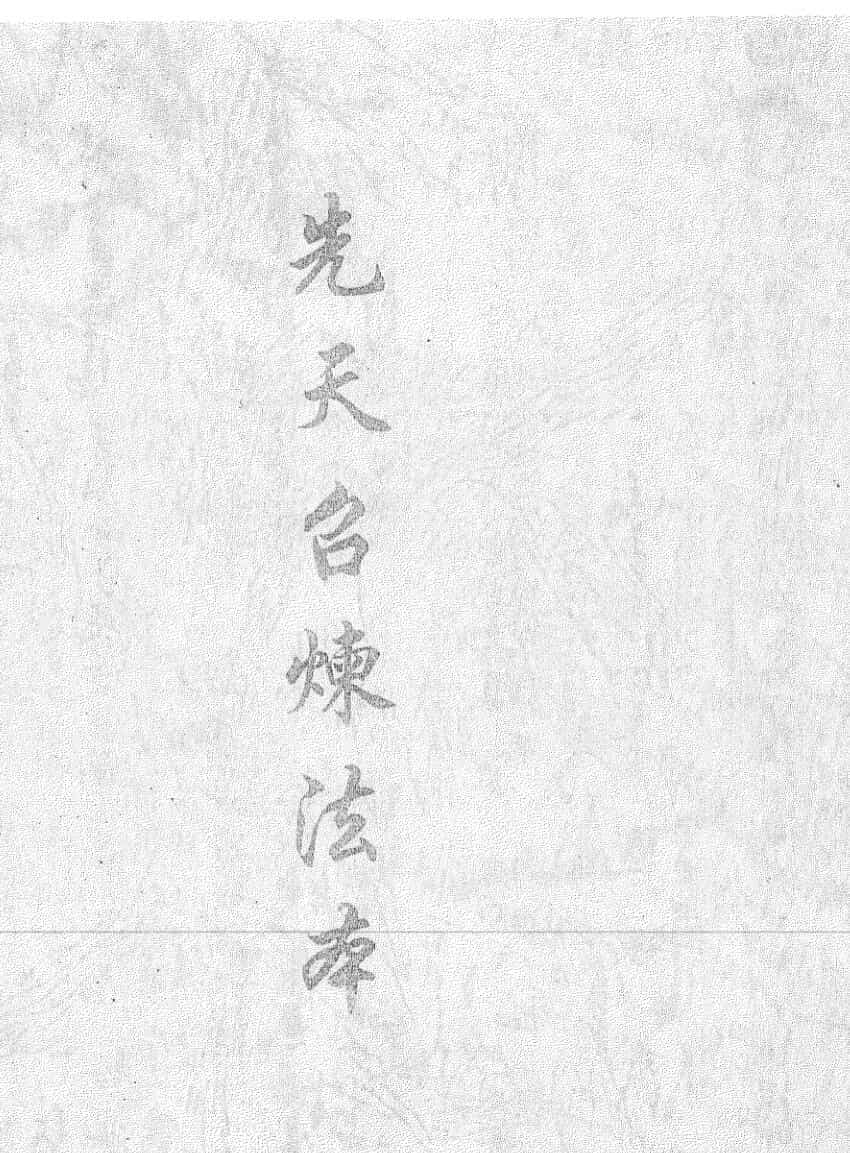 先天召煉法本